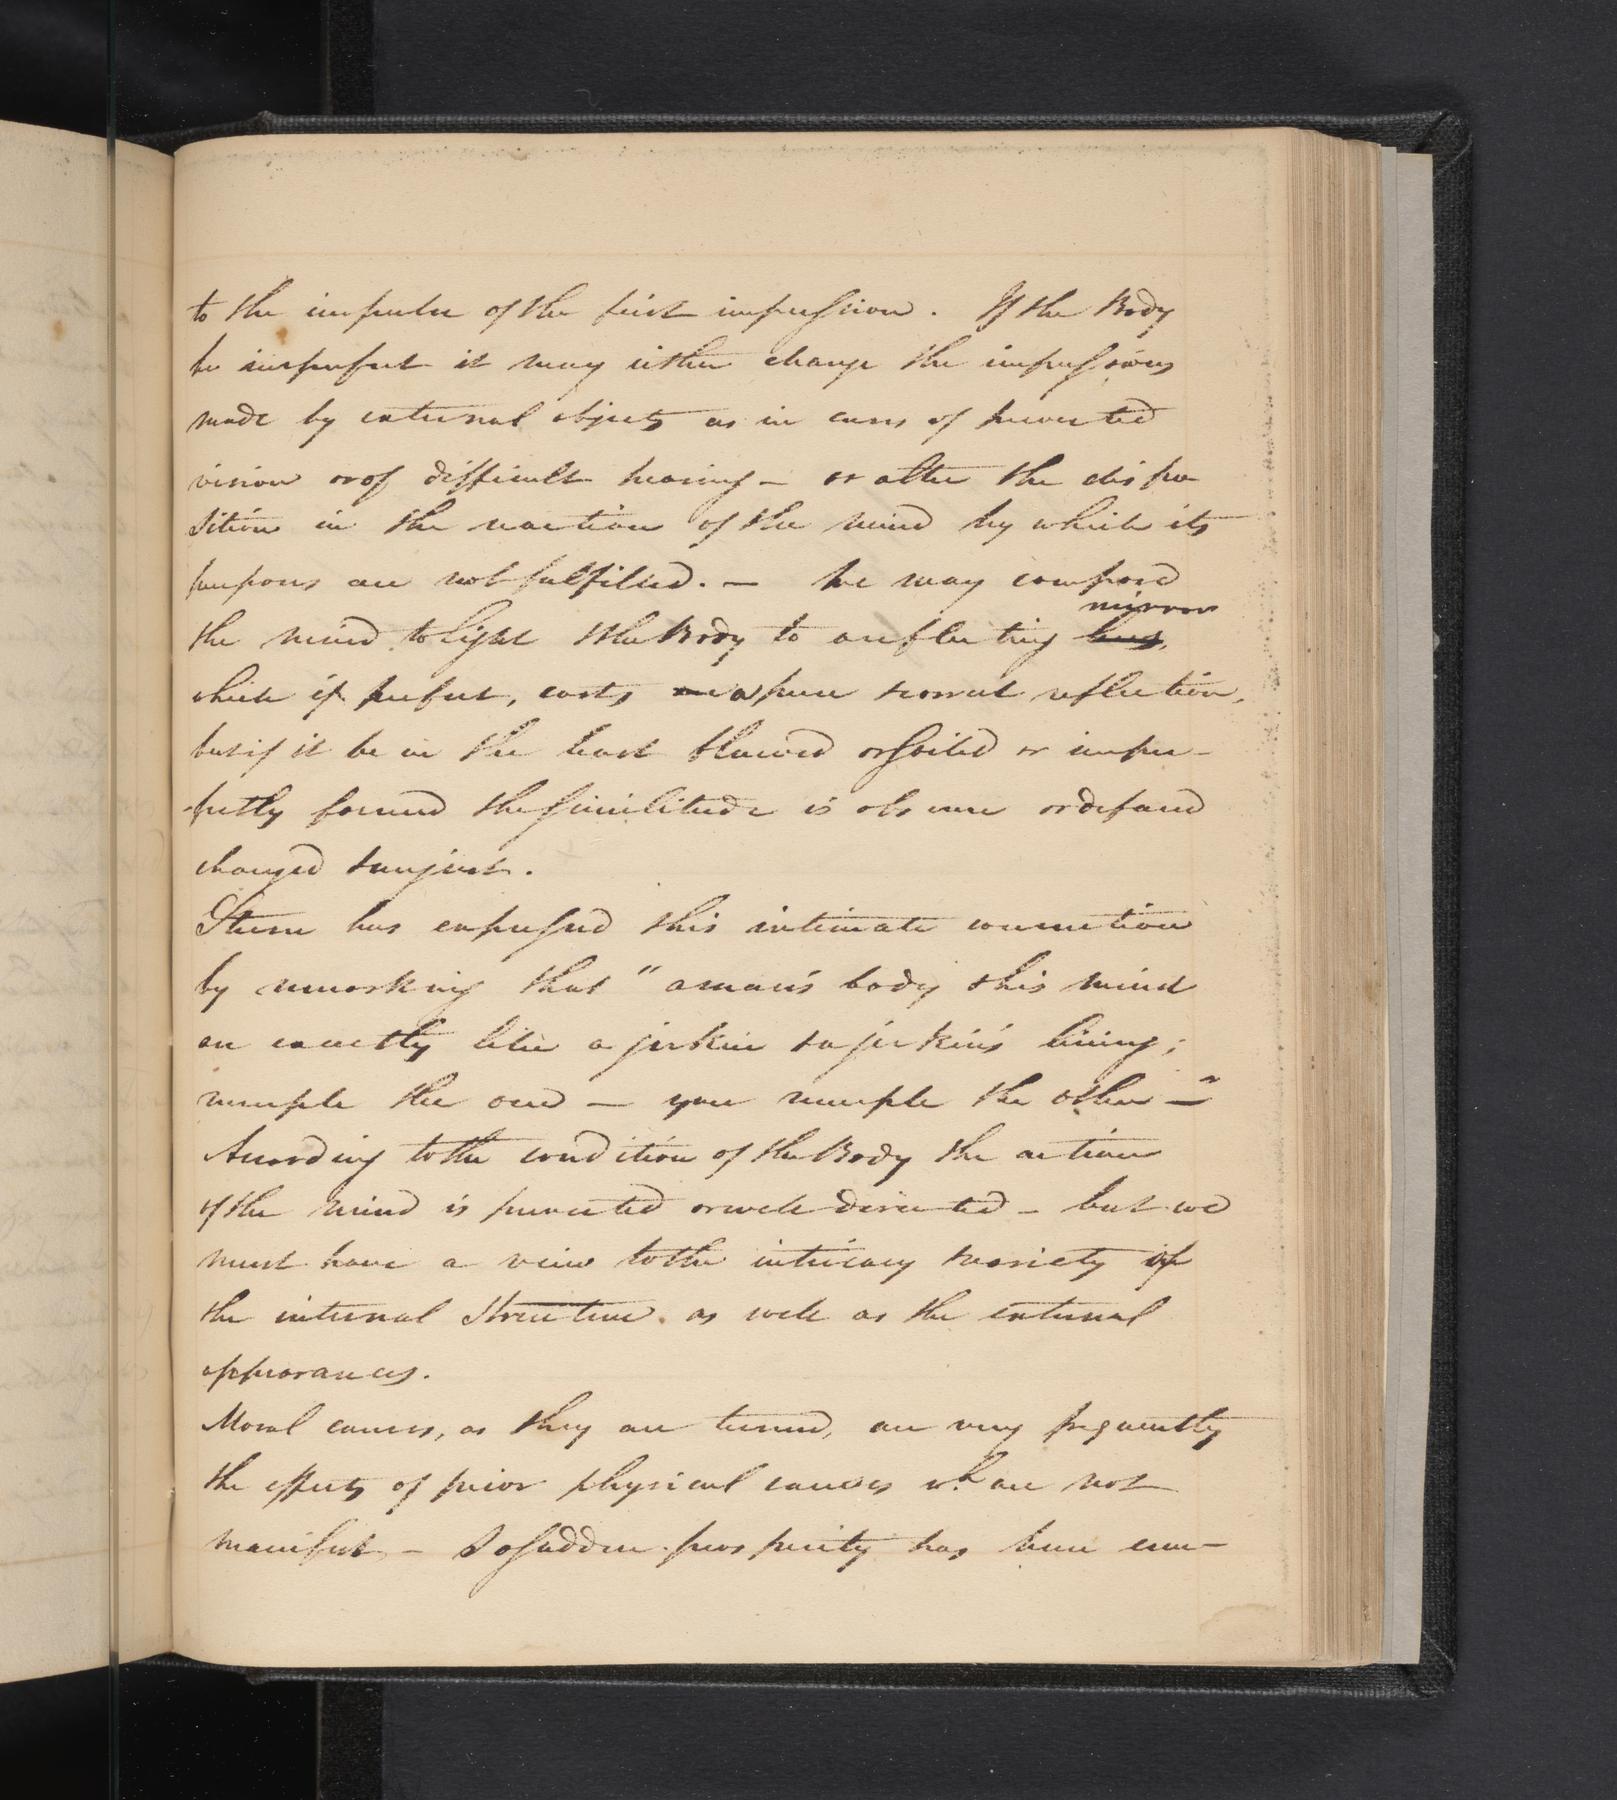 to the impulse of the first impression. If the Body
be imperfect it may either change the impressions
made by external objects as in cases of perverted
vision or of difficult hearing - or alter the dispo
sition in the reaction of the mind by which its
purposes are not fulfilled. - We may compare
the mind to light & the Body to a reflecting lens, mirror
which if perfect, casts a pure & correct reflection,
but if it be in the least flawed or soiled or imper-
-fectly formed the similitude is obscure or defaced
changed & unjust.
Sterne has expressed this intimate connection
by remarking that "a man's body & his mind
are exactly like a jerkin & a jerkin's lining;
rumple the one - you rumple the other -"
According to the condition of the Body the action
of the mind is perverted or well directed - but we
must have a view to the intricacy & variety of
the internal structure as well as the external
appearances.
Moral causes, as they are termed, are very frequently
the effects of prior physical causes wh. are not
manifest - So sudden prosperity has been enu-